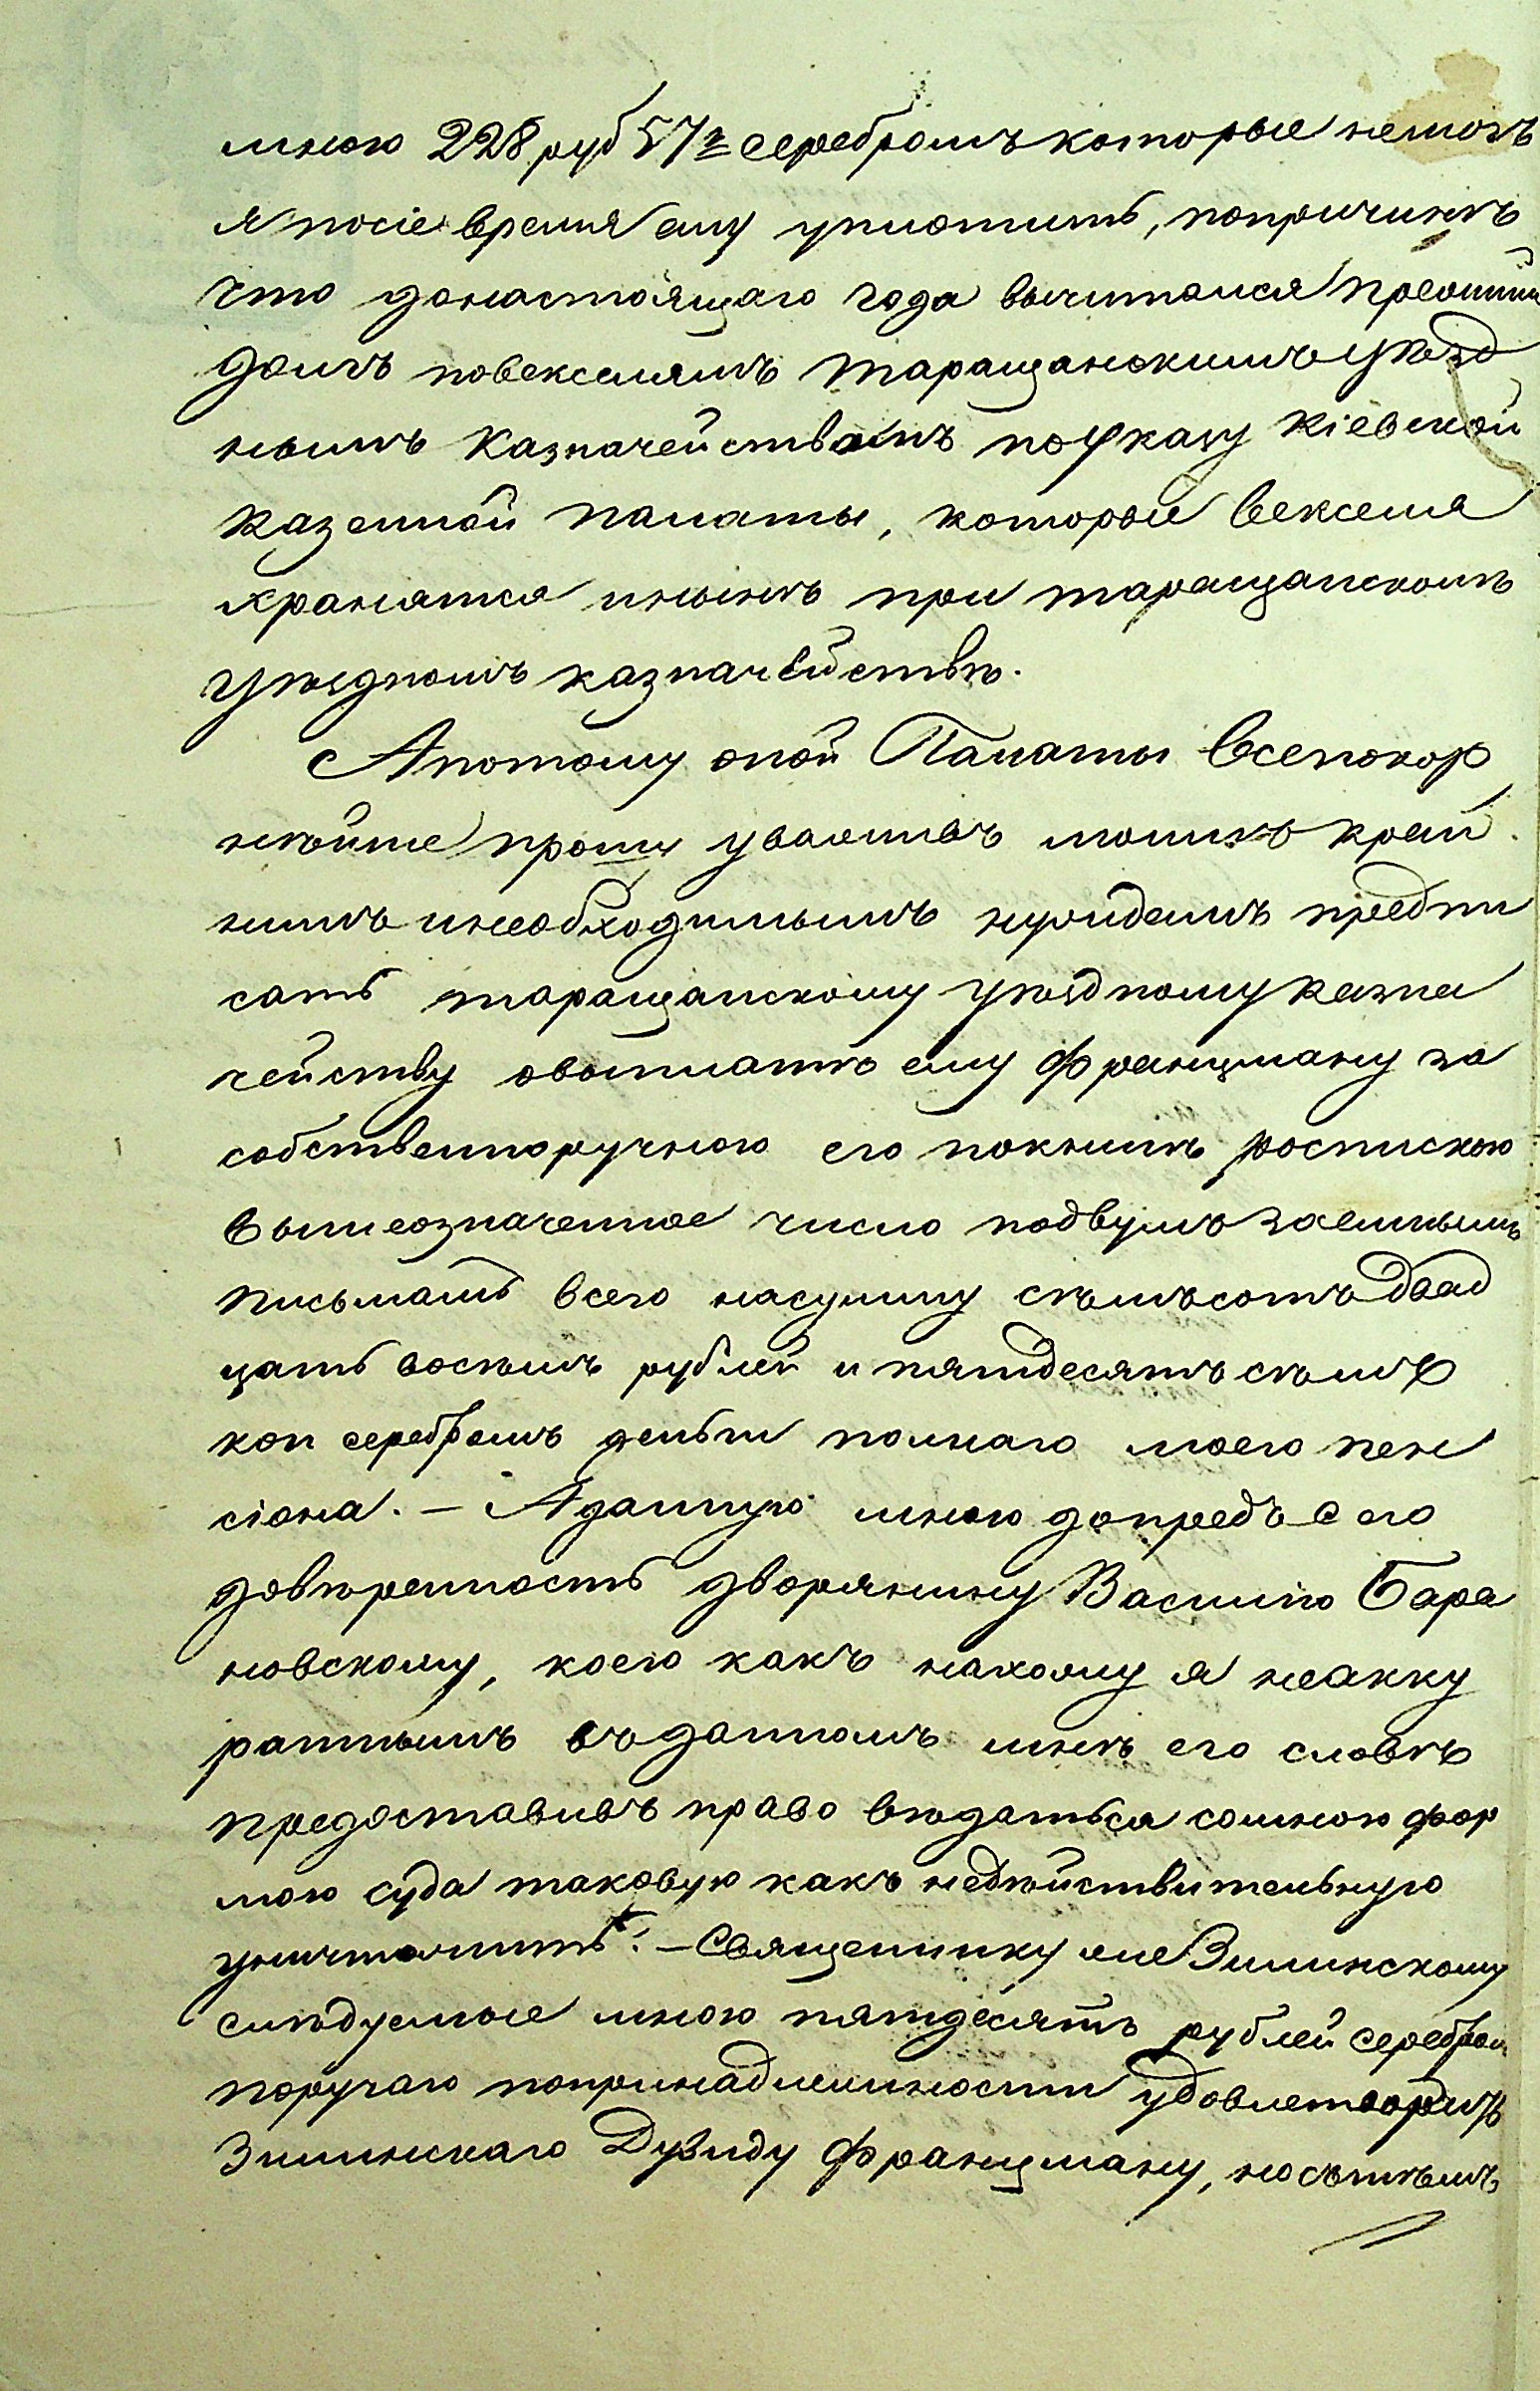 мною 228 руб 57 к серебромъ которые немогъ
я посіе время ему уплотить, попричинѣ
что донастоящаго года вычитался
долгъ повекселямъ таращанскимъ уѣзд
нымъ Казначействомъ поУказу Кіевской
Казенной Палаты, которые векселя
хранятся инынѣ при таращанскомъ
уѣздномъ казначействѣ.
Апотому оной Палаты всепокор
нѣйше прошу уваживъ моимъ край
нимъ инеобходимымъ нуждамъ предпи
сать таращанскому уѣздному казна
чейству овыплатѣ ему Францману за
собственноручною его покнигѣ роспискою
вышеозначенное число подвумъ заемнымъ
письмамъ всего насумму сѣмъсотъ двад
цать восѣмъ рублей и пятдесятъ сѣмъ
коп серебромъ деньги полнаго моего пен
сіона. — Аданную мною допредъ сего
довѣренность дворянину Василію Бара
новскому, коего какъ нахожу я неакку
ратнымъ въданномъ мнѣ его словѣ
предоставивъ право вѣдаться сомною фор
мою суда таковую какъ недѣйствительную
уничтожить. — Священнику же Зилинскому
слѣдуемые мною пятдесятъ рублей серебром
поручаю попринадлежности удовлетворить
Зилинскаго Дувиду Францману, но сътѣмъ